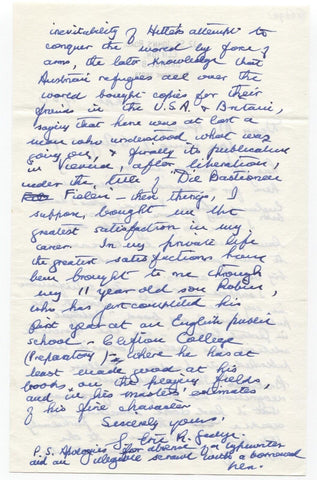 inevitability of Hitler's attempt to
conquer the world by force of
arms, the later knowledge that
Austrian refugees all over the
world bought copies for their
friends in the U.S.A. & Britain,
saying that here was at last a
man who understood what was
going on, &, finally its publication
in Vienna, after liberation,
under the title of "Die Bastionen
Fielen — these things, I
suppose, brought me the
greatest satisfaction in my
career. In my private life
the greatest satisfactions have
been brought to me through
my 11 year old son Robin,
who has just completed his
first year at an English public
school – Clifton College
(Preparatory) – where he has at
least made good at his
books, on the playing fields,
and in his masters' estimates,
of his fine character
Sincerely yours,
G. Eric R. Gedye.
P.S. Apologies for absence of a typewriter
and an illegible scrawl with a borrowed
pen.